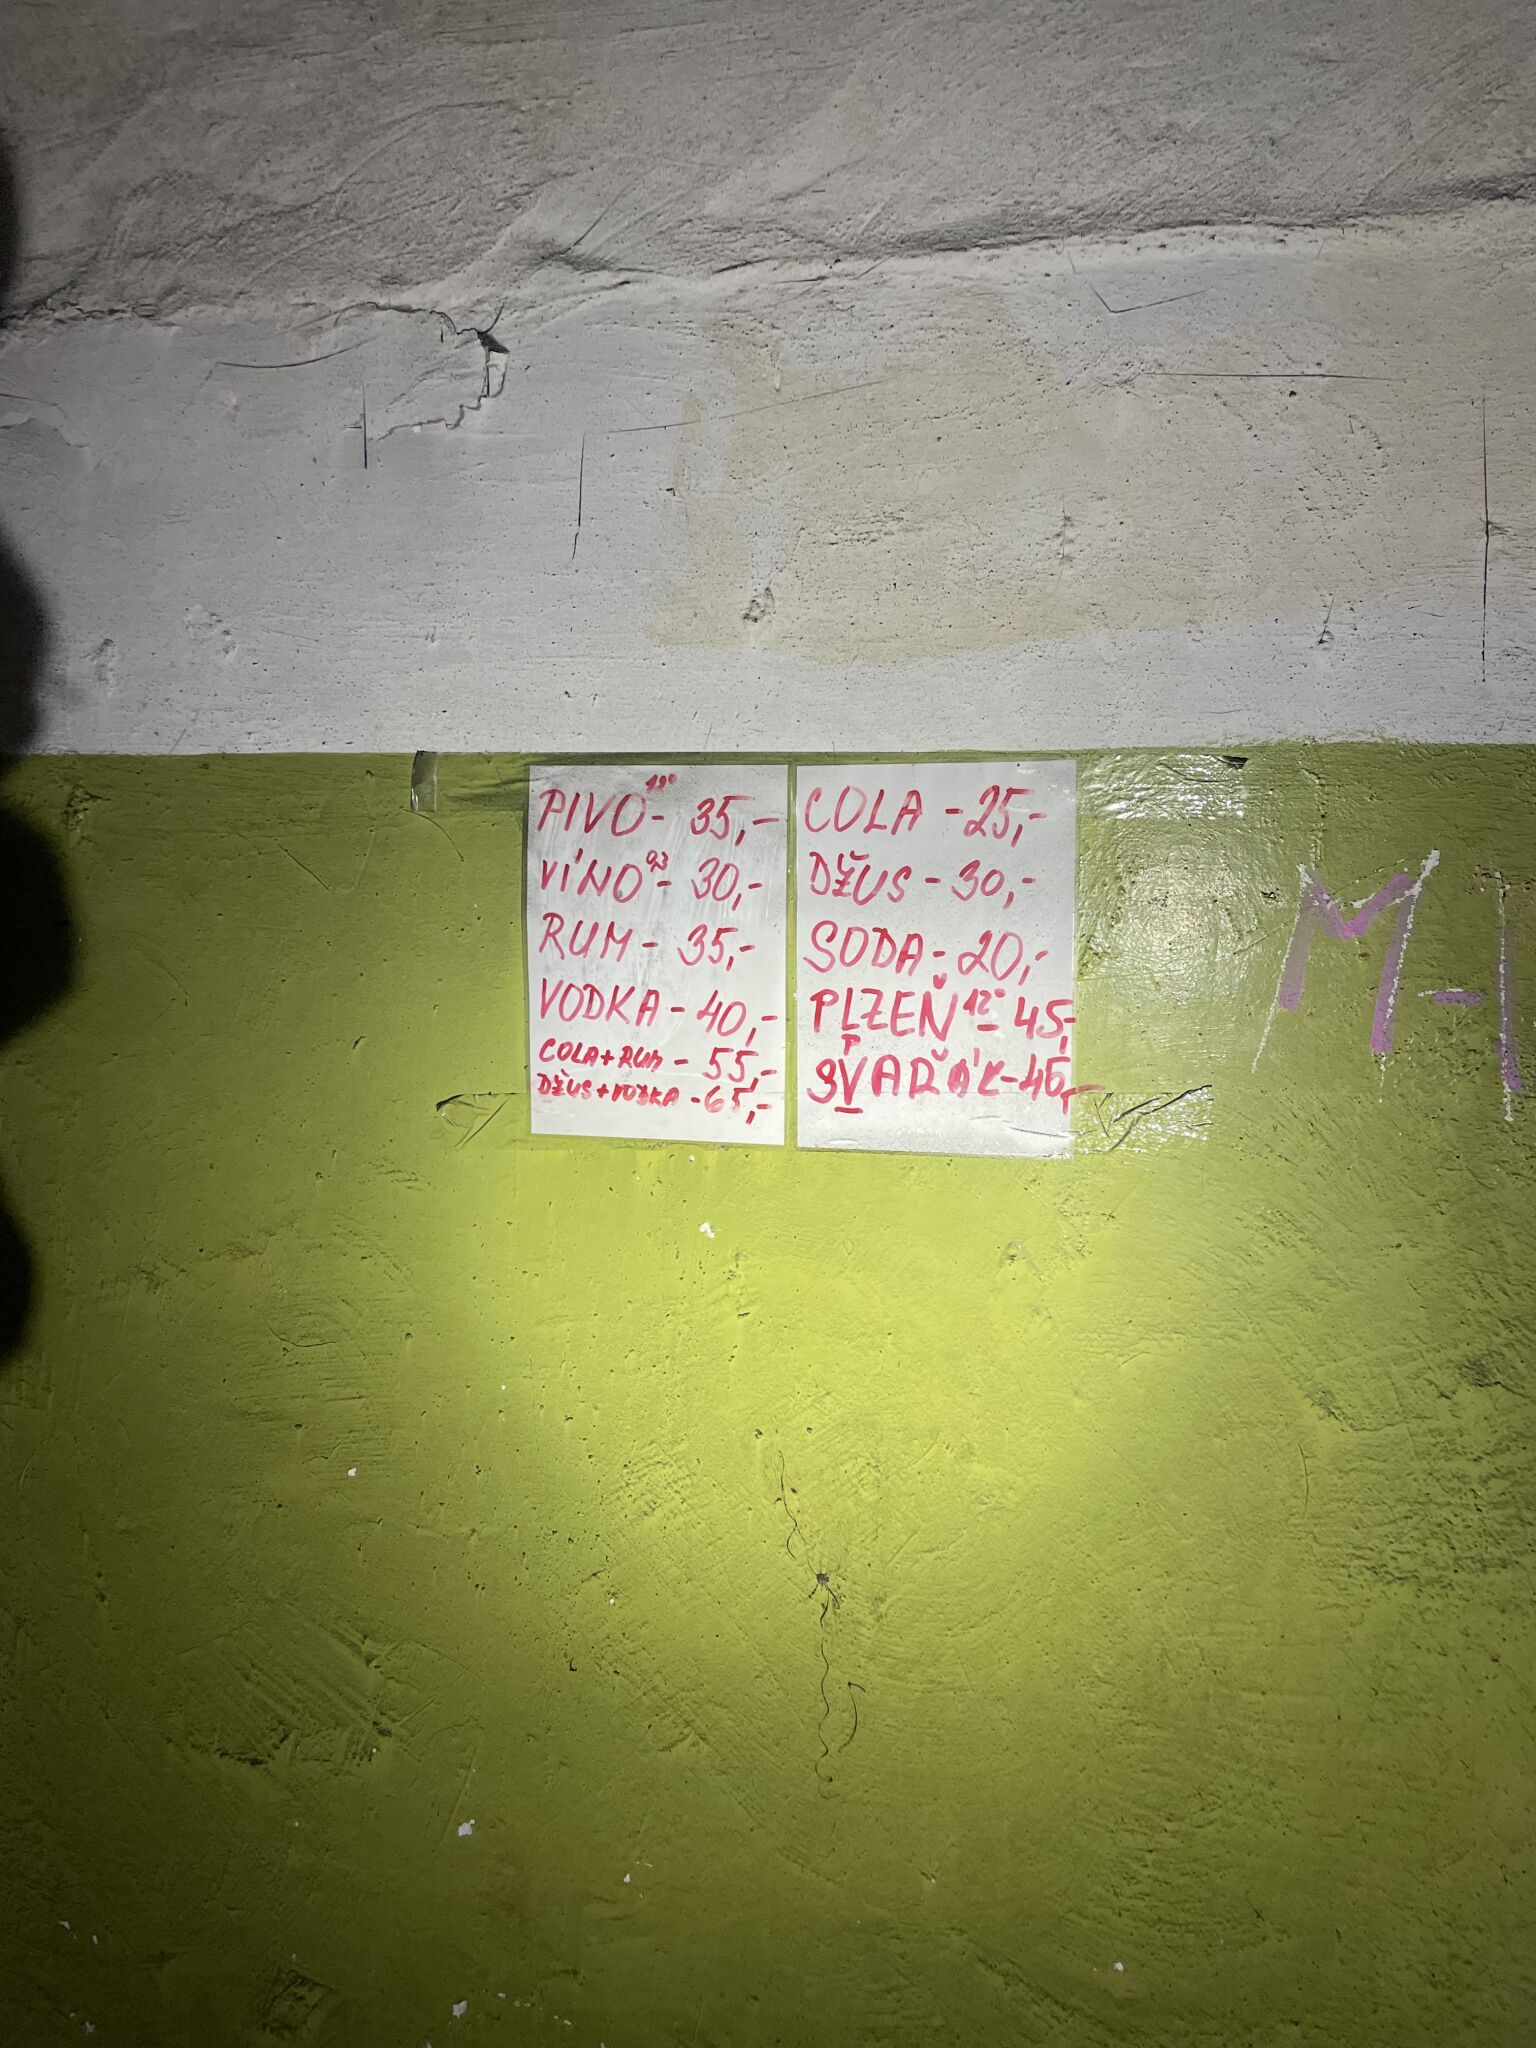 PIVO - 35,-
VÍNO - 30,-
RUM - 35,-
VODKA - 40,-
COLA + RUM - 55,-
DŽUS + VODKA - 65,-
COLA - 25,-
DŽUS - 30,-
SODA - 20,-
PLZEŇ 12° - 45,-
SVAŘÁK - 45,-
M-1